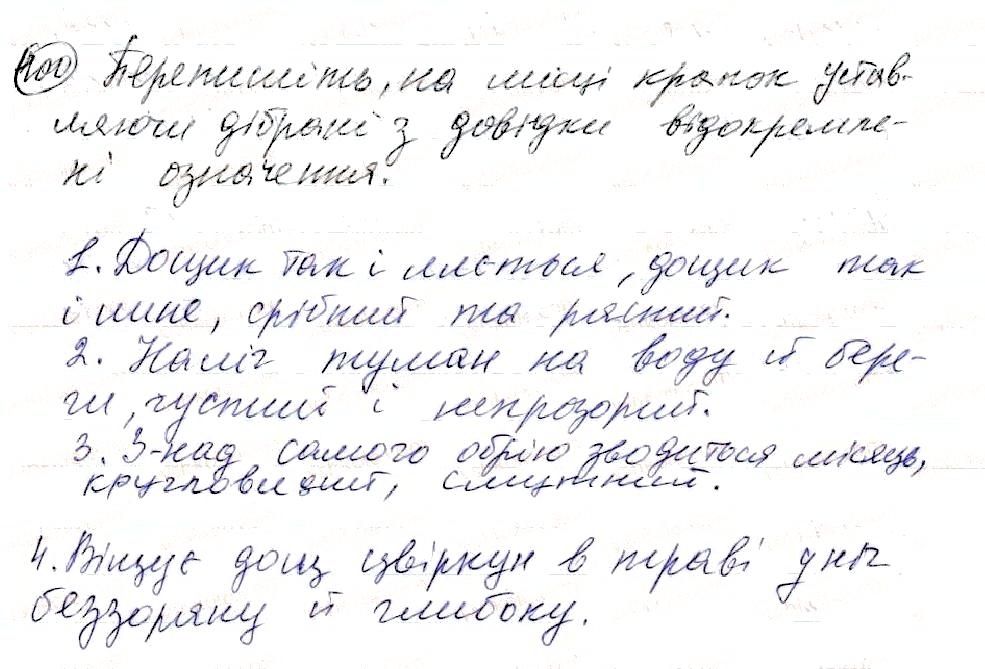 400 Перепишіть, на місці крапок устав-
ляючи дібрані з довідки відокремле-
ні означення.
1. Дощик так і ллється, дощик так
і лине, срібний та рясний.
2. Наліг туман на воду й бере-
ги, густий і непрозорий.
3. З-над самого обрію зводиться місяць,
кругловидий, смутний.
4. Віщує дощ цвіркун в траві у ніч
беззоряну й глибоку.